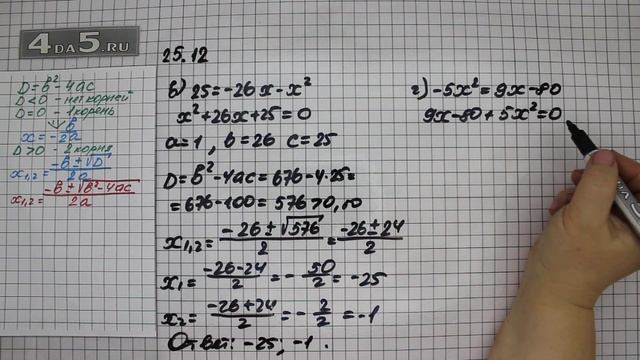 4DA5.RU
D=b²-4ac
D<0 - нет корней
D=0 - 1 корень
x=-b/2a
D>0 - 2 корня
x₁,₂=(-b±√D)/2a
x₁,₂=(-b±√(b²-4ac))/2a
25.12
в) 25=-26x-x²
x²+26x+25=0
a=1, b=26 c=25
D=b²-4ac=676-4·25=
=676-100=576>0,
x₁,₂=(-26±√576)/2=(-26±24)/2
x₁=(-26-24)/2=-50/2=-25
x₂=(-26+24)/2=-2/2=-1
Ответ: -25; -1.
г) -5x²=9x-80
9x-80+5x²=0